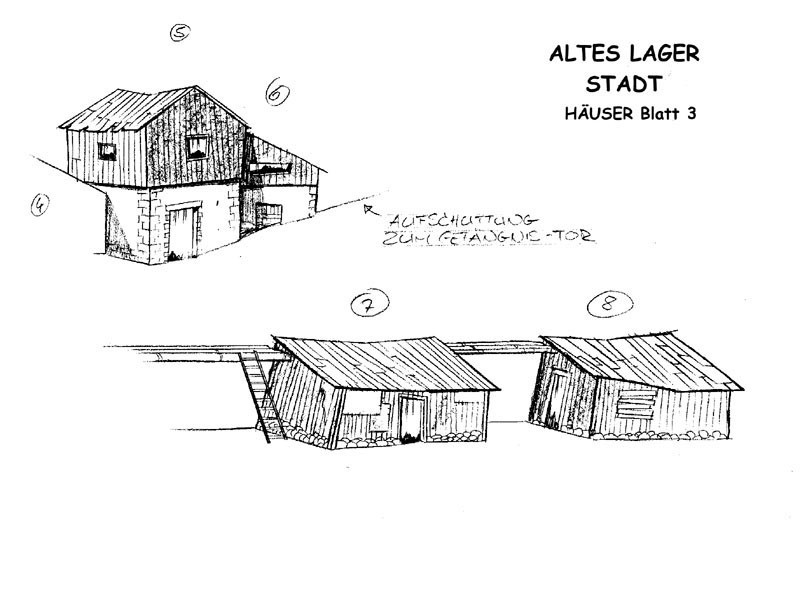 5
ALTES LAGER
STADT
HÄUSER Blatt 3
6
4
AUFSCHÜTTUNG
ZUM GEFÄNGNIS-TOR
7
8